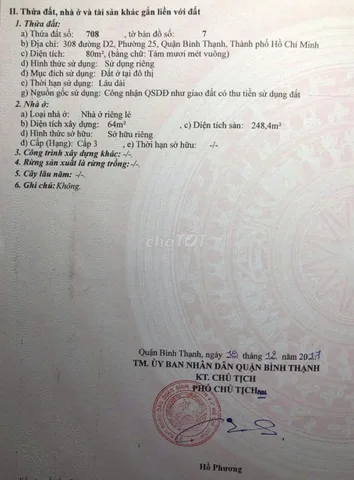 II. Thửa đất, nhà ở và tài sản khác gắn liền với đất
1. Thửa đất:
a) Thửa đất số: 708 , tờ bản đồ số: 7
b) Địa chỉ: 308 đường D2, Phường 25, Quận Bình Thạnh, Thành phố Hồ Chí Minh
c) Diện tích: 80m², (bằng chữ: Tám mươi mét vuông)
d) Hình thức sử dụng: Sử dụng riêng
đ) Mục đích sử dụng: Đất ở tại đô thị
e) Thời hạn sử dụng: Lâu dài
g) Nguồn gốc sử dụng: Công nhận QSDĐ như giao đất có thu tiền sử dụng đất
2. Nhà ở:
a) Loại nhà ở: Nhà ở riêng lẻ
b) Diện tích xây dựng: 64m² , c) Diện tích sàn: 248,4m²
d) Hình thức sở hữu: Sở hữu riêng
đ) Cấp (Hạng): Cấp 3 , e) Thời hạn sở hữu: -/-
3. Công trình xây dựng khác: -/-.
4. Rừng sản xuất là rừng trồng: -/-.
5. Cây lâu năm: -/-.
6. Ghi chú: Không.
chợTỐT
Quận Bình Thạnh, ngày 18 tháng 12 năm 2017
TM. ỦY BAN NHÂN DÂN QUẬN BÌNH THẠNH
KT. CHỦ TỊCH
PHÓ CHỦ TỊCH
Hồ Phương